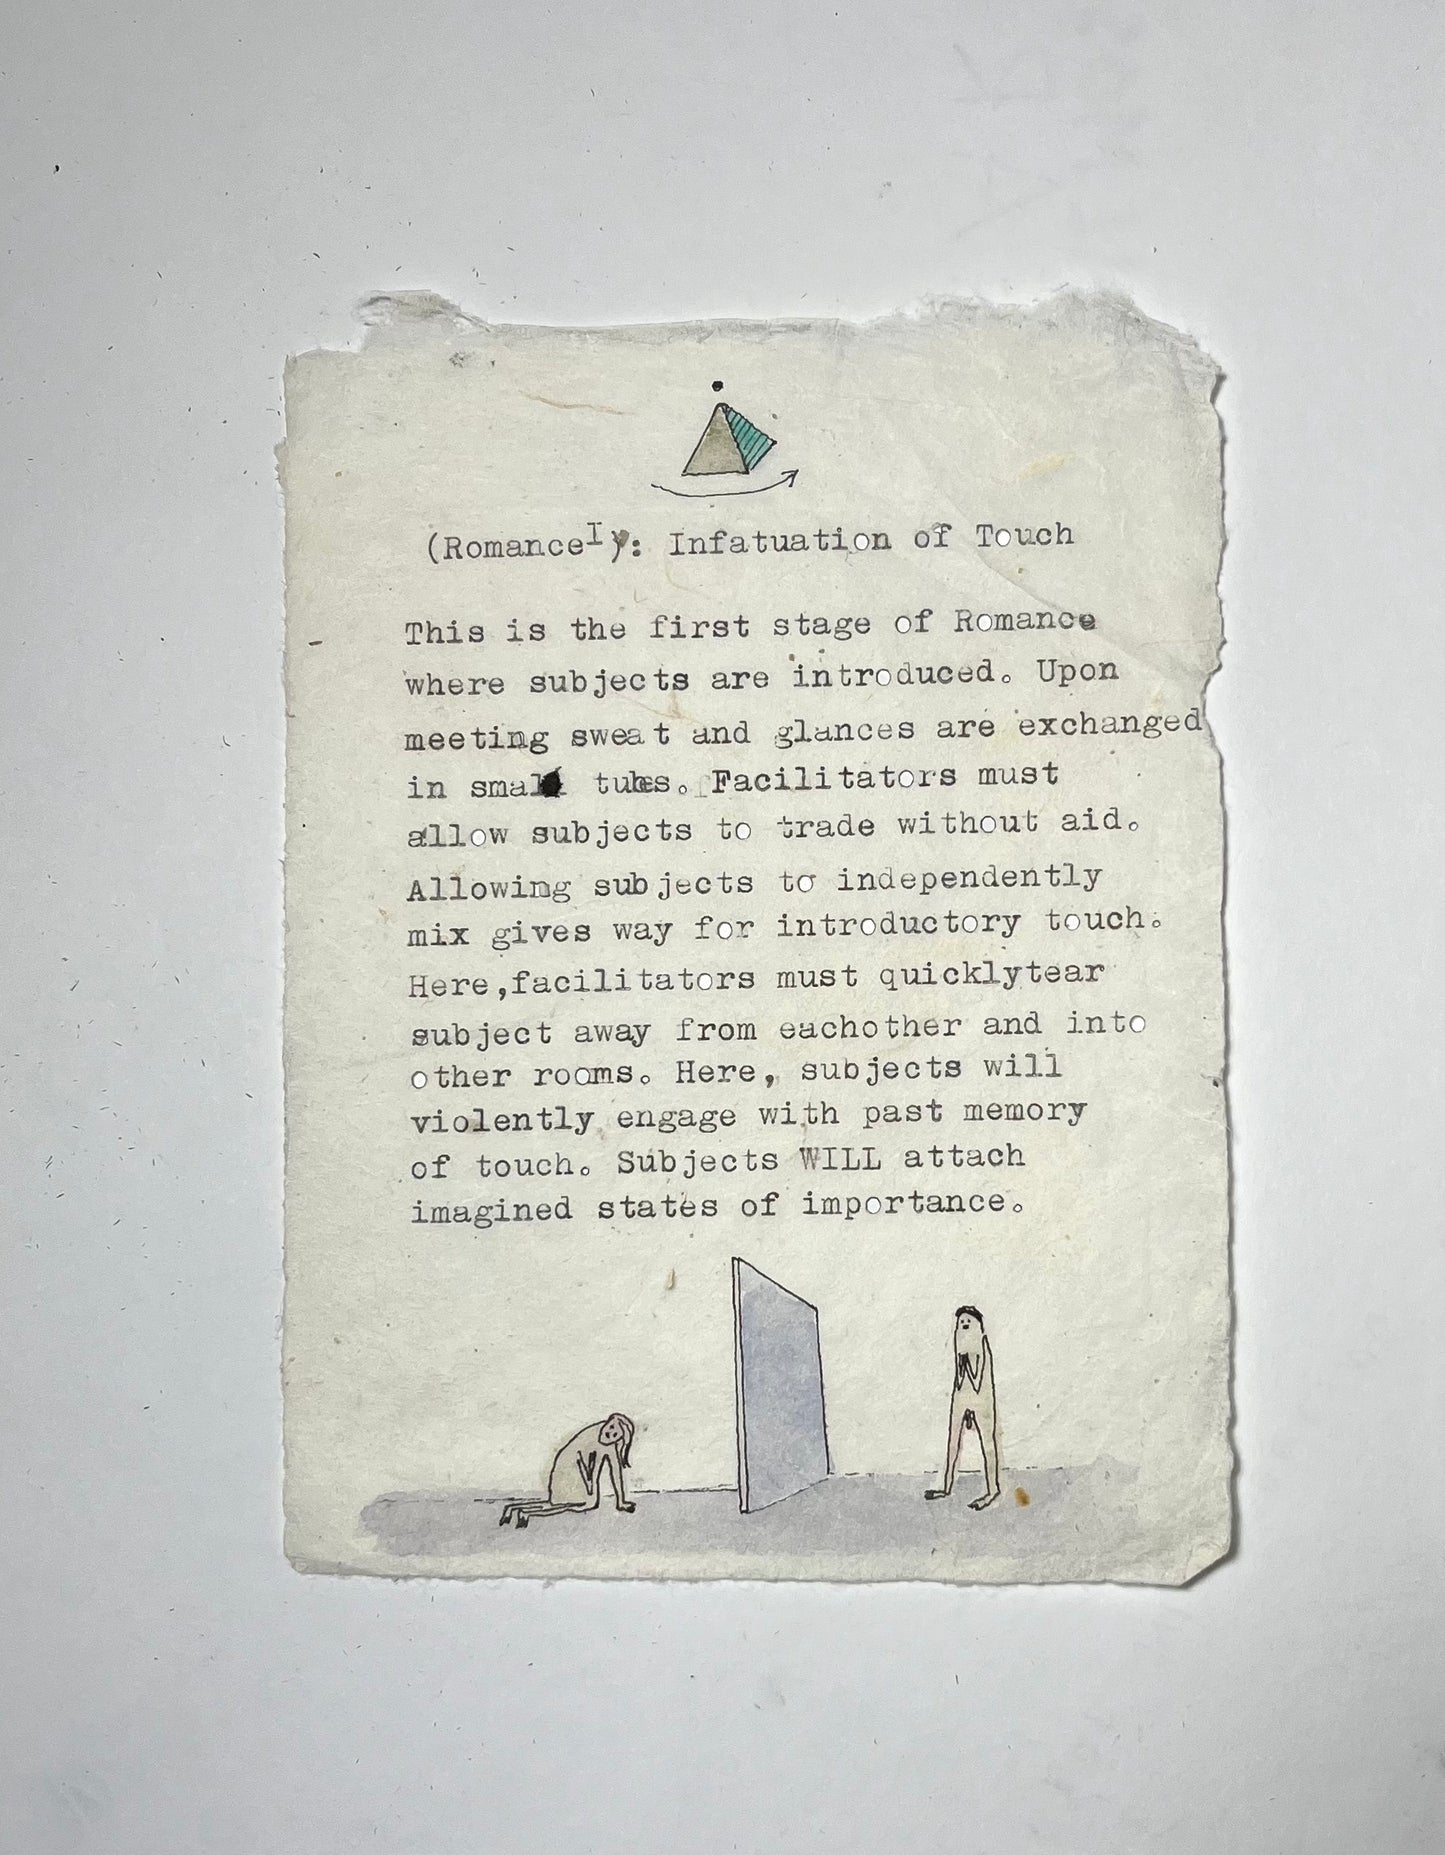 (Romance^I): Infatuation of Touch
This is the first stage of Romance
where subjects are introduced. Upon
meeting sweat and glances are exchanged
in small tubes. Facilitators must
allow subjects to trade without aid.
Allowing subjects to independently
mix gives way for introductory touch.
Here,facilitators must quicklytear
subject away from eachother and into
other rooms. Here, subjects will
violently engage with past memory
of touch. Subjects WILL attach
imagined states of importance.